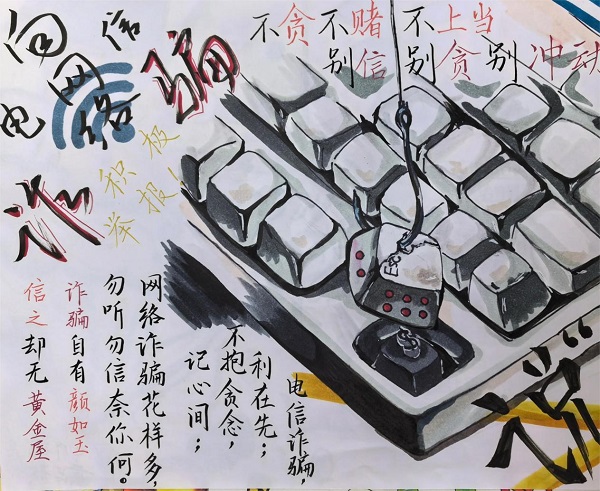 向电信网络诈骗
说
不贪不赌不上当
别信别贪别冲动
积极举报！
Esc
电信诈骗，
利在先；
不抱贪念，
记心间；
网络诈骗花样多，
勿听勿信奈你何。
诈骗自有颜如玉
信之却无黄金屋